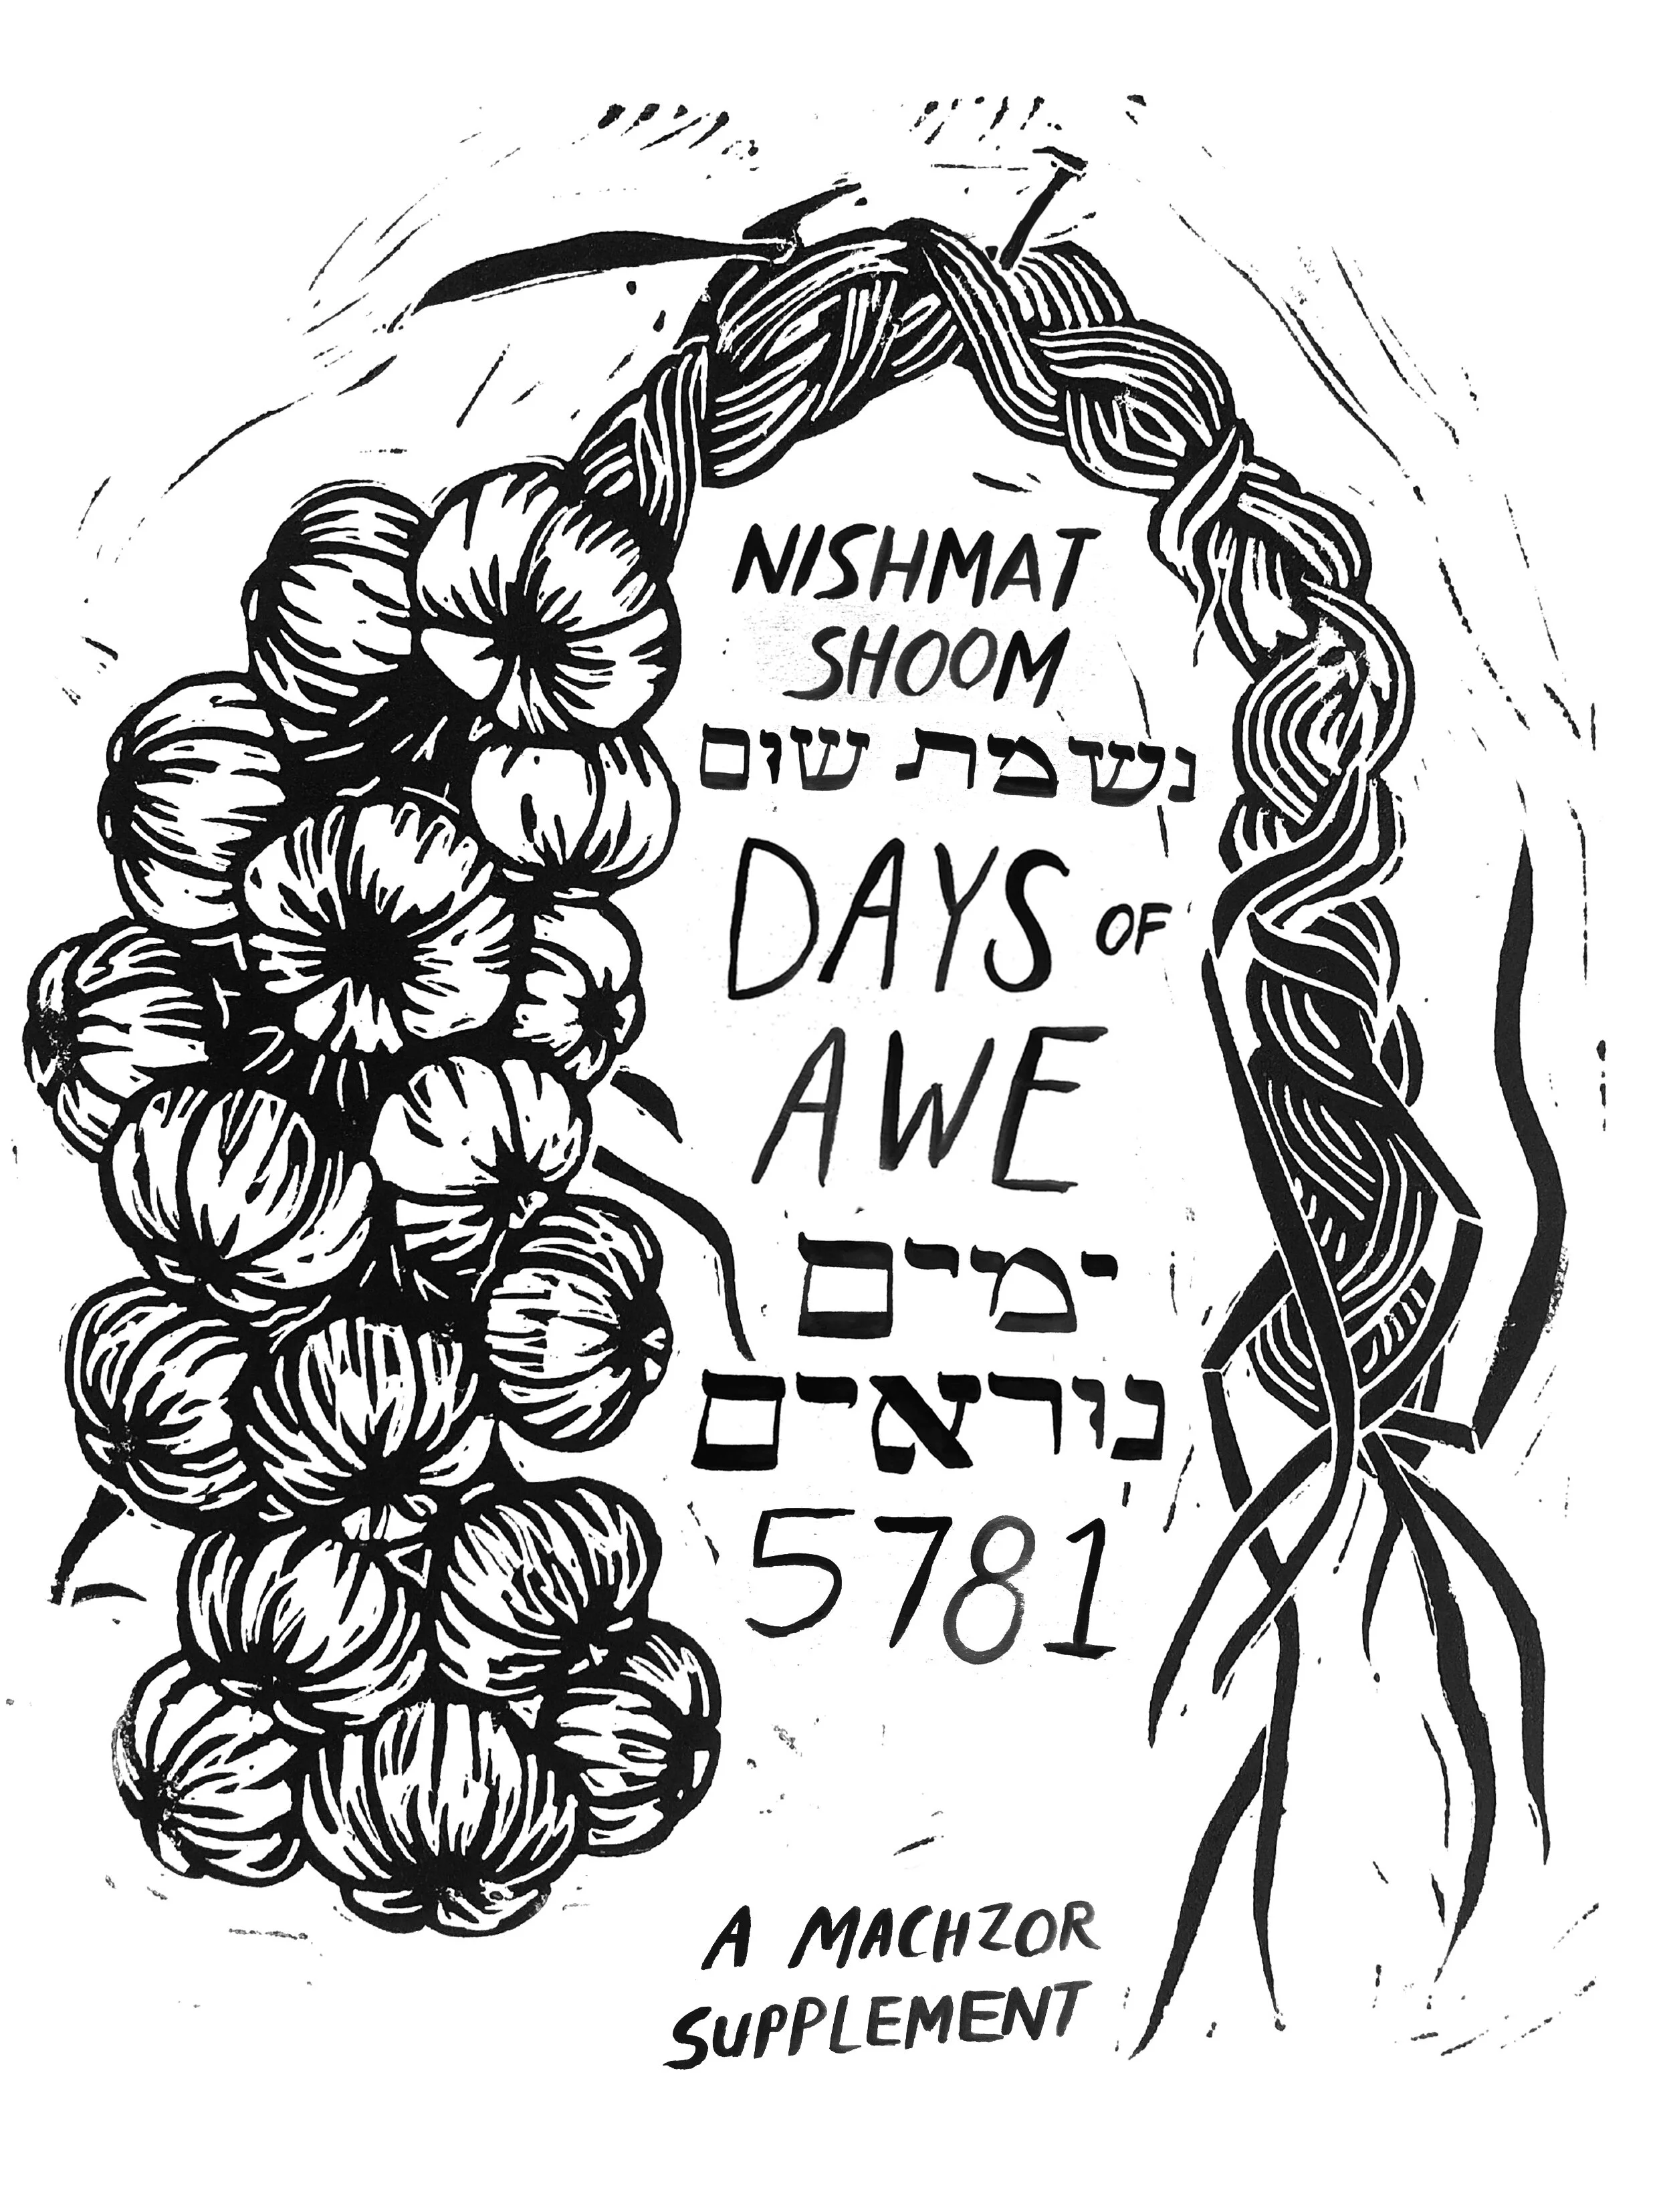 NISHMAT
SHOOM
נשמת שום
DAYS OF
AWE
ימים
נוראים
5781
A MACHZOR
SUPPLEMENT